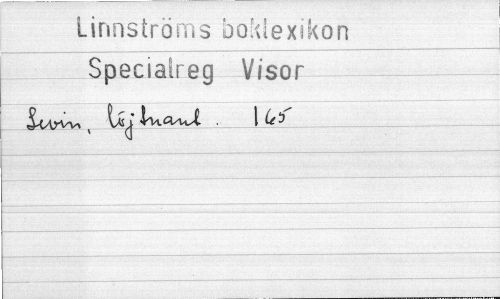 Linnströms boklexikon
Specialreg Visor
Levin, löjtnant. 165